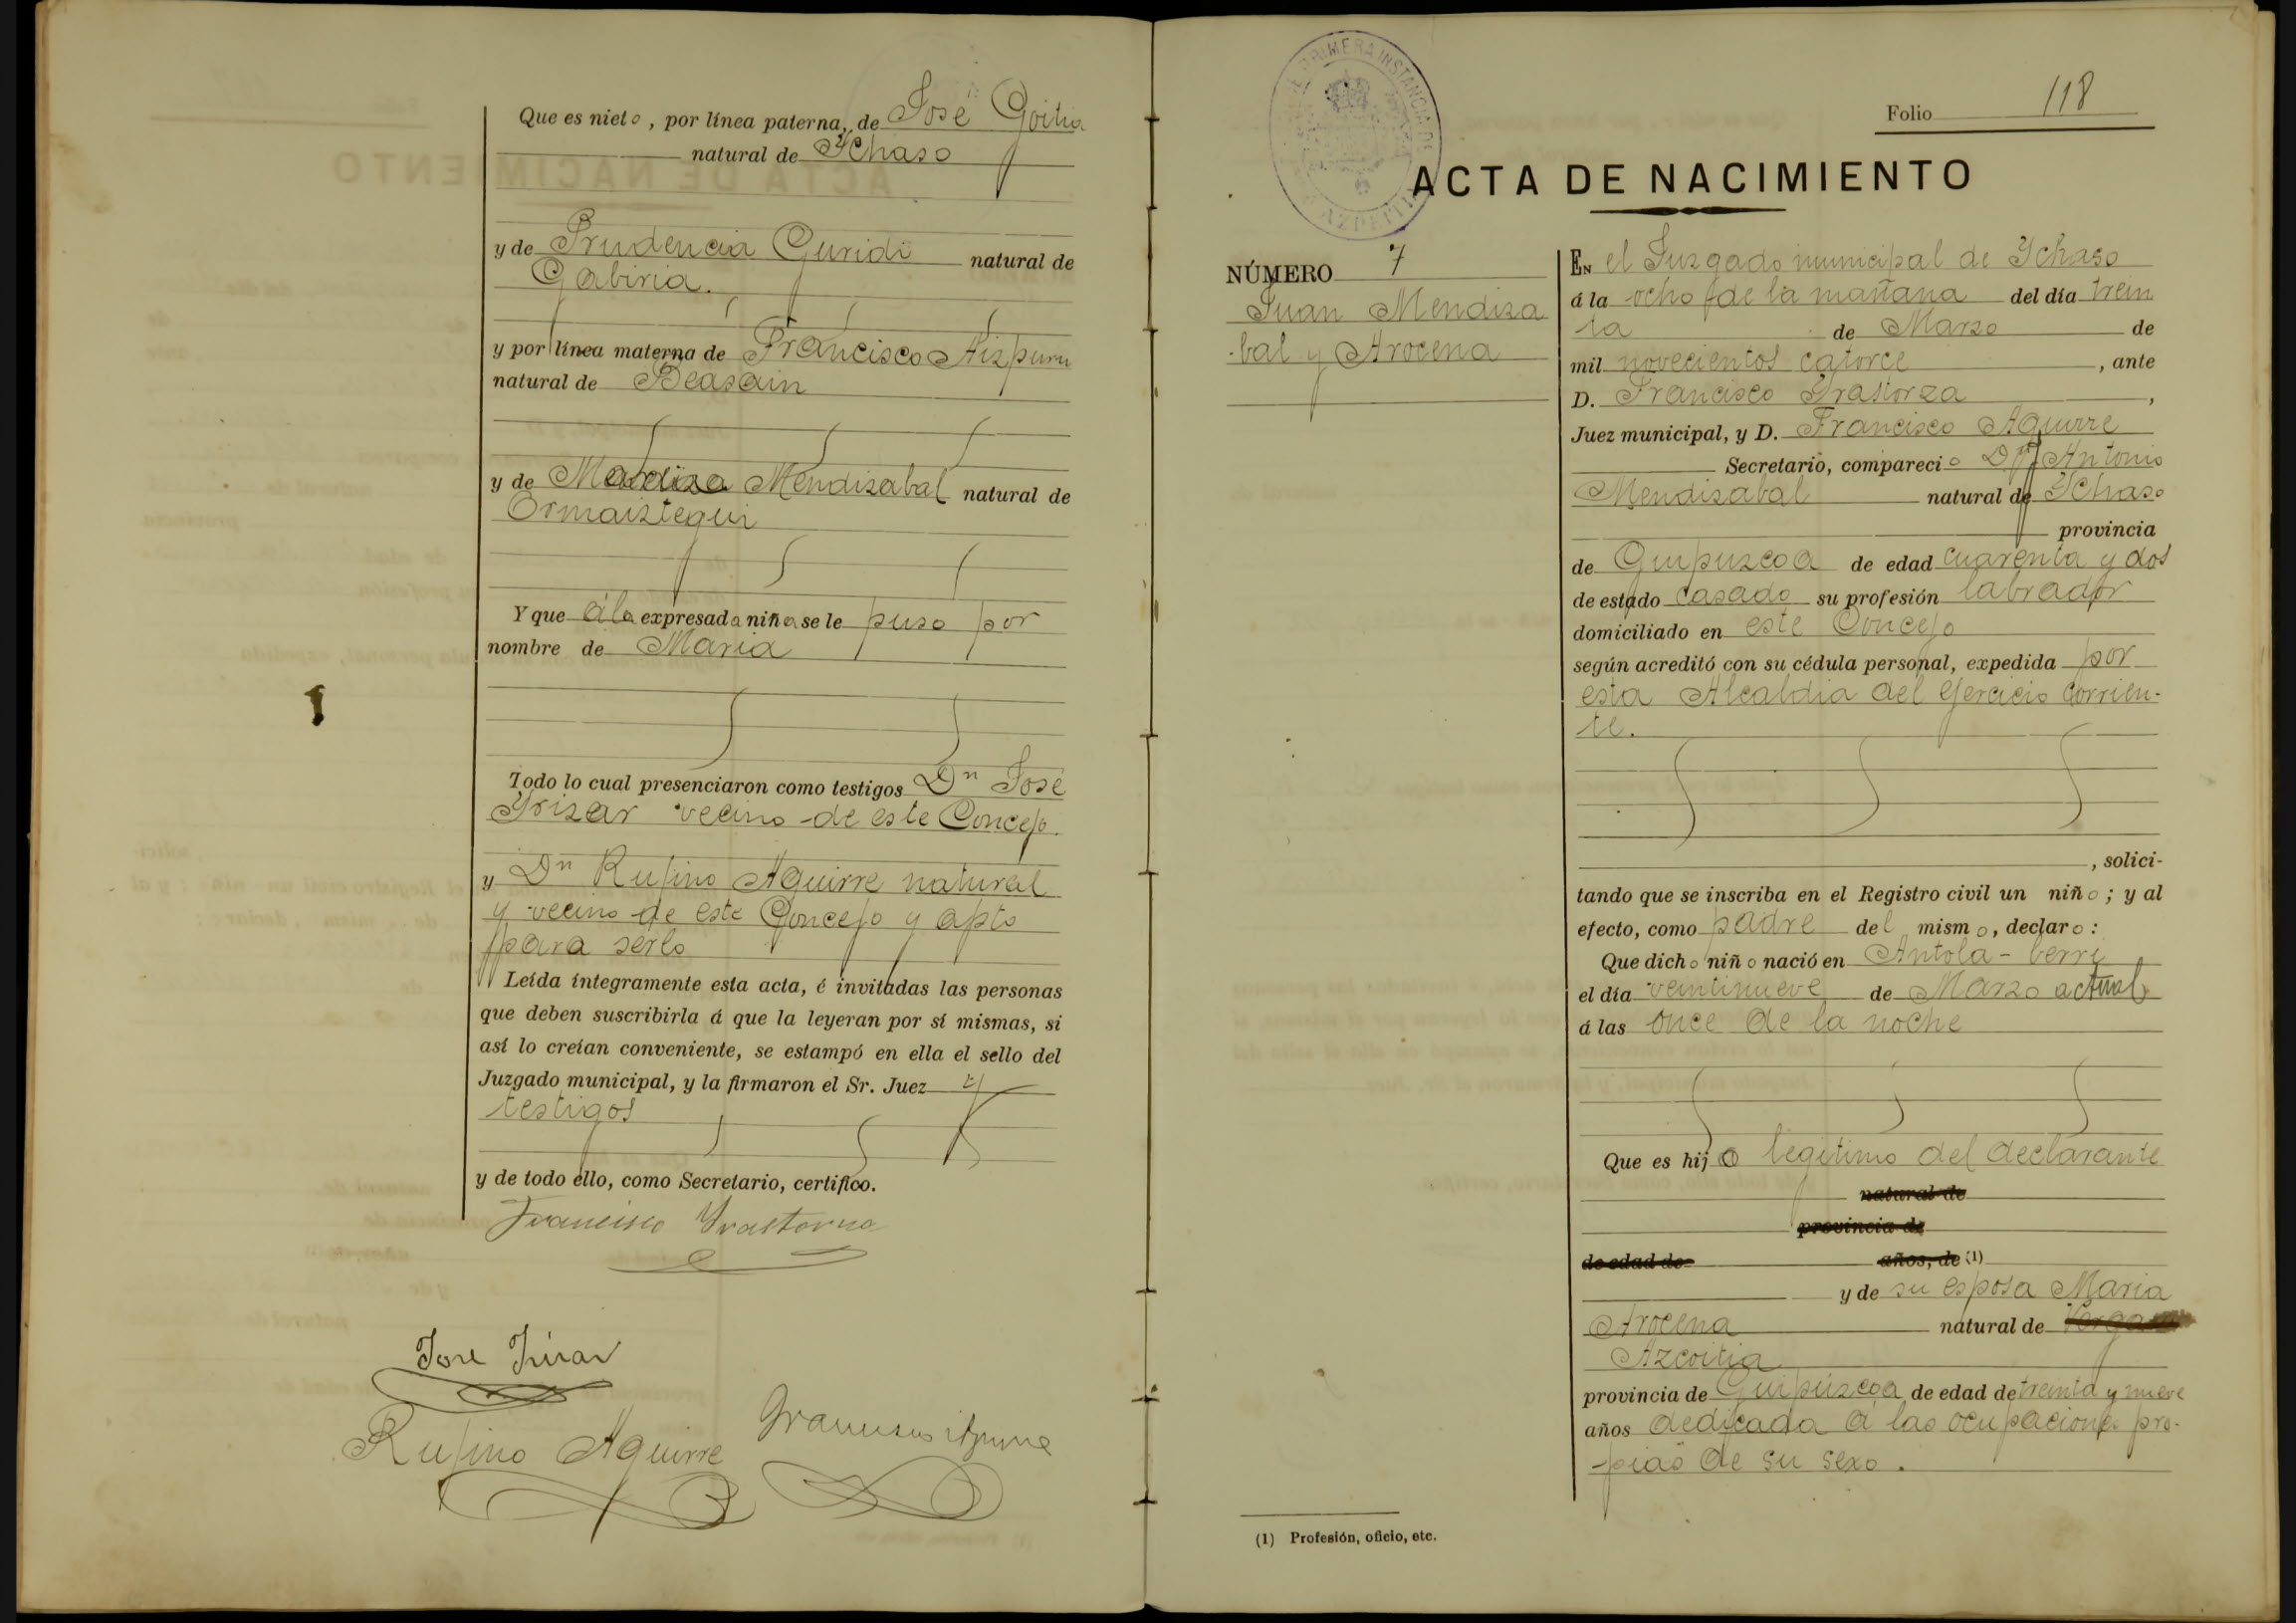 Que es nieto, por línea paterna, de José Goitia
natural de Ychaso
y de Prudencia Guridi natural de
Gabiria.
y por línea materna de Francisco Aizpuru
natural de Beasain
y de Mendizabal natural de
Ormaiztegui
Y que á la expresada niña se le puso por
nombre de Maria
Todo lo cual presenciaron como testigos Dn José
Yrizar vecino de este Concejo.
y Dn Rufino Aguirre natural
y vecino de este Concejo y apto
para serlo
Leída íntegramente esta acta, é invitadas las personas
que deben suscribirla á que la leyeran por sí mismas, si
así lo creían conveniente, se estampó en ella el sello del
Juzgado municipal, y la firmaron el Sr. Juez y
testigos
y de todo ello, como Secretario, certifico.
Francisco Yrastorza
José Yrizar
Rufino Aguirre
Francisco Aguirre
DE PRIMERA INSTANCIA DE AZPEITIA
Folio 118
ACTA DE NACIMIENTO
NÚMERO 7
Juan Mendiza
bal y Arocena
EN el Juzgado municipal de Ychaso
á la ocho de la mañana del día trein
ta de Marzo de
mil novecientos catorce, ante
D. Francisco Yrastorza,
Juez municipal, y D. Francisco Aguirre
Secretario, compareció Dn Antonio
Mendizabal natural de Ychaso
provincia
de Guipuzcoa de edad cuarenta y dos
de estado casado su profesión labrador
domiciliado en este Concejo
según acreditó con su cédula personal, expedida por
esta Alcaldia del ejercicio corrien-
te.
, solici-
tando que se inscriba en el Registro civil un niño; y al
efecto, como padre del mismo, declaro:
Que dicho niño nació en Antola-berri
el día veintinueve de Marzo actual
á las once de la noche
Que es hijo legitimo del declarante
natural de
provincia de
de edad de años, de (1)
y de su esposa Maria
Arocena natural de Verga
Azcoitia
provincia de Guipúzcoa de edad de treinta y nueve
años dedicada á las ocupaciones pro-
pias de su sexo.
(1) Profesión, oficio, etc.